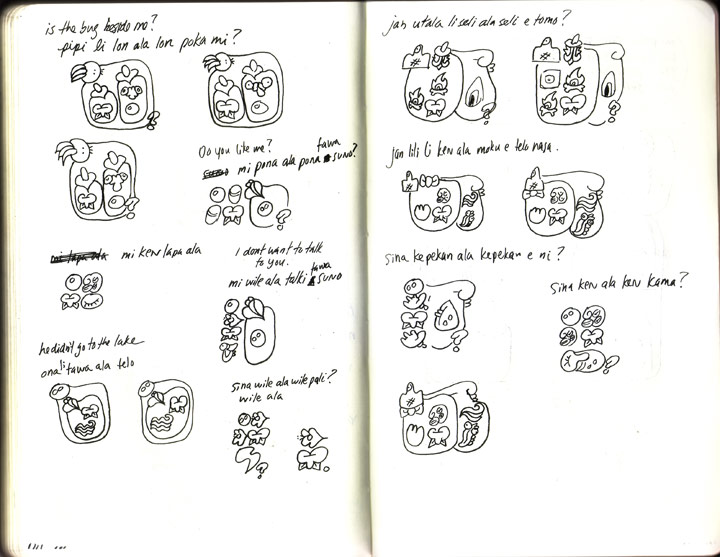 is the bug beside me?
pipi li lon ala lon poka mi?
Do you like me?
tawa
mi pona ala pona suno?
mi ken lapa ala
I dont want to talk
to you.
tawa
mi wile ala talki suno
he didn't go to the lake
ona li tawa ala telo
sina wile ala wile pali?
wile ala
jan utala li seli ala seli e tomo?
jan lili li ken ala moku e telo nasa.
sina kepekan ala kepekan e ni?
sina ken ala ken kama?